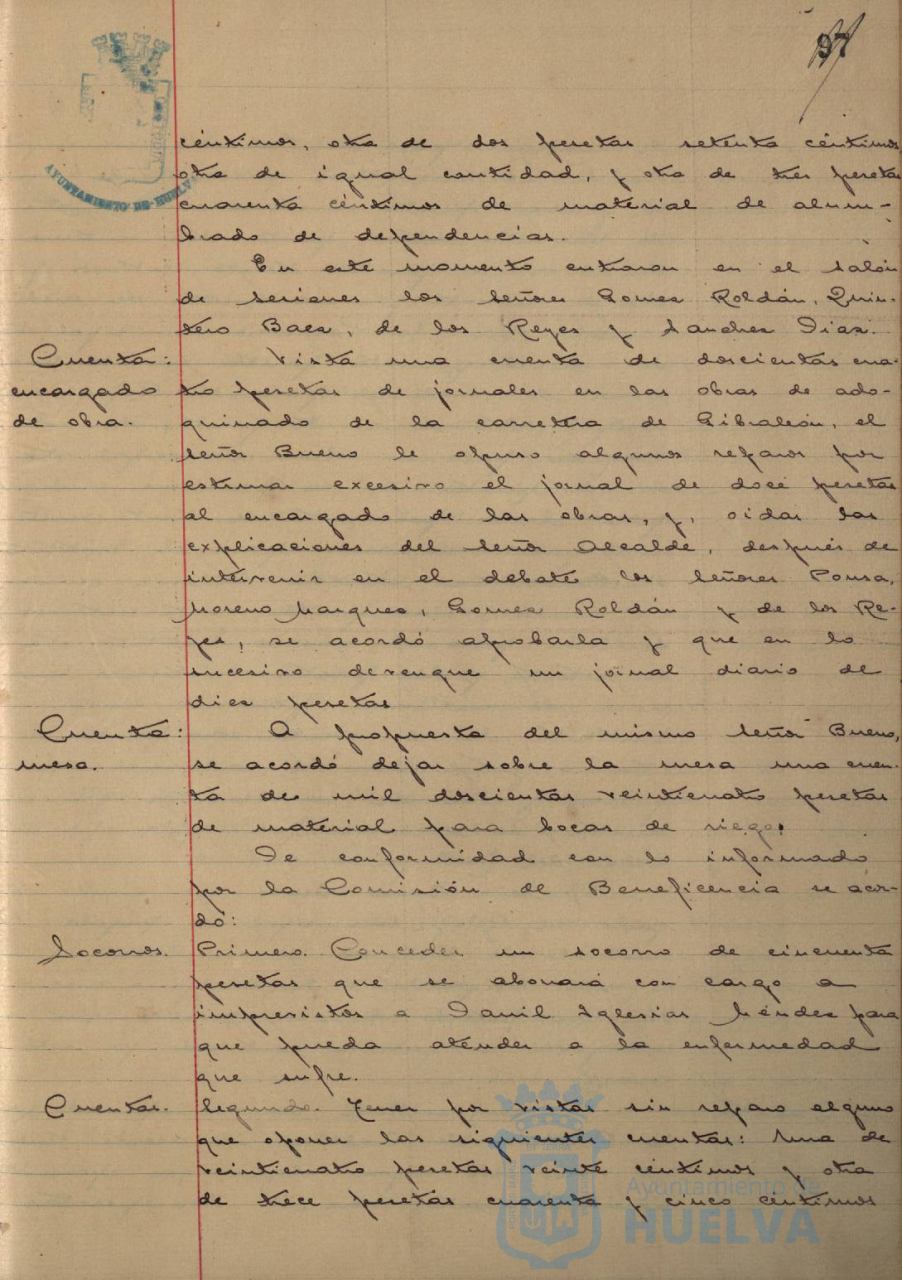 97
AYUNTAMIENTO DE HUELVA
céntimos, otra de dos pesetas setenta céntimos
otra de igual cantidad, y otra de tres pesetas
cuarenta céntimos de material de alum-
brado de dependencias.
En este momento entraron en el salón
de sesiones los señores Gomez Roldán, Quin-
tero Baez, de los Reyes y Sanchez Diaz.
Cuenta:
encargado
de obra.
Vista una cuenta de doscientas cua-
tro pesetas de jornales en las obras de ado-
quinado de la carretera de Gibraleón, el
señor Bueno le opuso algunos reparos por
estimar excesivo el jornal de doce pesetas
al encargado de las obras, y, oidas las
explicaciones del señor Alcalde, después de
intervenir en el debate los señores Ponsa,
Moreno Marquez, Gomez Roldán y de los Re-
yes, se acordó aprobarla y que en lo
sucesivo devengue un jornal diario de
diez pesetas
Cuenta:
mesa.
A propuesta del mismo señor Bueno,
se acordó dejar sobre la mesa una cuen-
ta de mil doscientas veinticuatro pesetas
de material para bocas de riego.
De conformidad con lo informado
por la Comisión de Beneficencia se acor-
dó:
Socorros.
Primero. Conceder un socorro de cincuenta
pesetas que se abonará con cargo a
imprevistos a Iglesias Méndez para
que pueda atender a la enfermedad
que sufre.
Cuentas.
Segundo. Tener por vistas sin reparo alguno
que oponer las siguientes cuentas: Una de
veinticuatro pesetas veinte céntimos y otra
de trece pesetas cuarenta y cinco céntimos
Ayuntamiento de
HUELVA